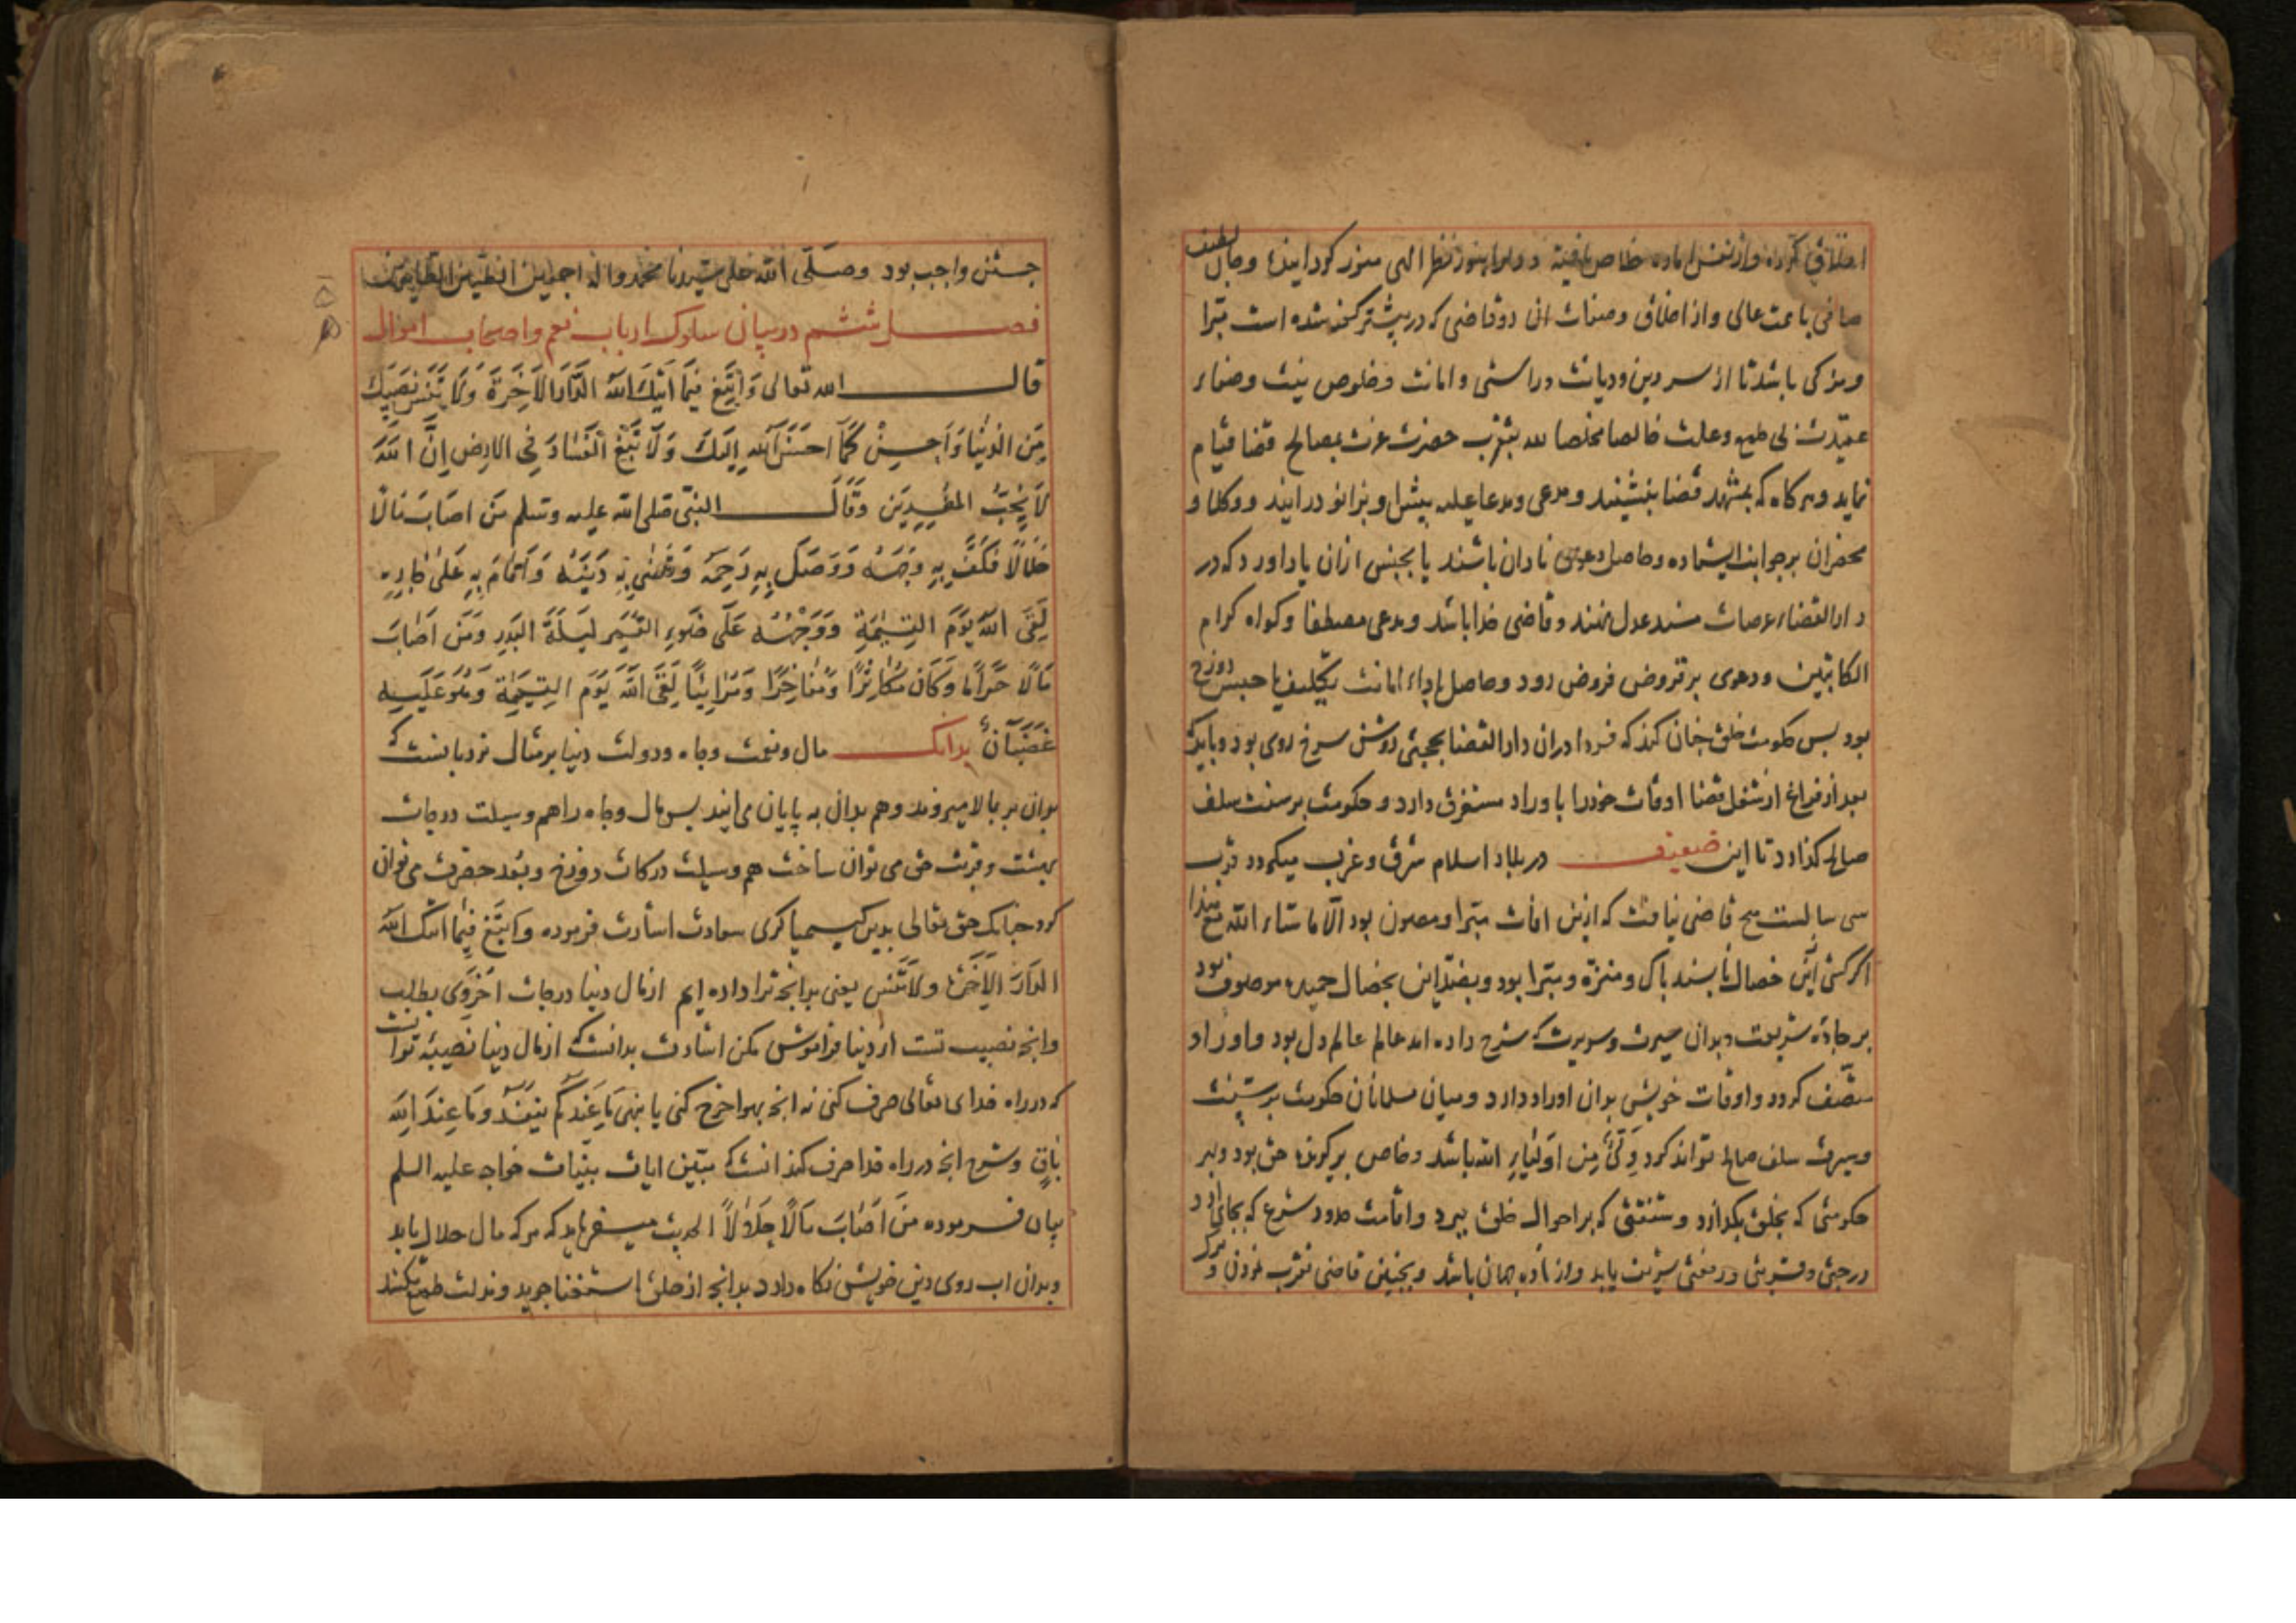 صافی با همت عالی و از اخلاق و صفات ان دو قاضی که در پیشتر گفته شده است مبرا
و مزکی باشد تا از سر دین و دیانت و راستی و امانت و خلوص نیت و صفاء
عقیدت بی طمع و علت خالصا مخلصا لله بتقرب حضرت عزت بمصالح قضا قیام
نماید و هرکاه که بمشهد قضا بنشیند و مدعی و مدعا علیه بیش او بزانو درایند و وکلا و
محضران برجوانب ایستاده و حاصل دعوی نادان باشند یا بجنس ازان یاد اورد که در
دار القضاء عرصات مسند عدل نهند و قاضی خدا باشد و مدعی مصطفا و کواه کرام
الکاتبین و دعوی بر قروض فروض رود و حاصل یا اداء امانت بتکلیف یا حبس دوزخ
بود بس حکومت خلق جنان کند که فردا دران دار القضا بحجتی روشن سرخ روی بود و باید که
بعد از فراغ از شغل قضا اوقات خود را باوراد مستغرق دارد و حکومت بر سنت سلف
صالح کذارد تا این ضعیف در بلاد اسلام شرق و غرب میکردد قرب
سی سالست هیچ قاضی نیافت که ازین افات مبرا و مصون بود الا ما شاء الله
اکر کسی ازین خصال نابسند باک و منزه و مبرا بود و بضد این بخصال حمیده موصوف بود
بر جاده شریعت و بدان سیرت و سریرت که شرح داده امد عالم عالم دل بود و اوراد
متصف کردد و اوقات خویش بدان اوراد دارد و میان مسلمانان حکومت بر سنت
و سیرت سلف صالح تواند کرد ولی من اولیاء الله باشد و خاص برکزیده حق بود و بهر
حکومتی که بخلق بکذارد و مشقتی که بر احوال خلق ببرد و اقامت حدود شرع که بجای ارد
درجتی و قربتی و رفعتی
جستن واجب بود وصلی الله علی سیدنا محمد واله اجمعین الطیبین الطاهرین
فصل ششم در بیان سلوک ارباب نعم و اصحاب اموال
قال الله تعالی وَابتَغِ فیمَا اتٰیكَ اللهُ الدَّارَ الاخِرَةَ وَلَا تَنسَ نَصیبَكَ
مِنَ الدُّنیَا وَاَحسِنْ كَمَا احسَنَ اللهُ اِلَیكَ وَلَا تَبْغِ الفَسَادَ فِی الارضِ اِنَّ اللهَ
لَا یُحِبُّ المُفسِدِینَ وَقَالَ النبی صلی الله علیه وسلم مَن اصَابَ مَالًا
حَلَالًا فَكَفَّ بِهِ وَجهَهُ وَوَصَلَ بِهِ رَحِمَهُ وَقَضٰی بِهِ دَینَهُ وَاَقَامَ بِهِ عَلٰی جَارِهِ
لَقِیَ اللهَ یَومَ القِیٰمَةِ وَوَجْهُهُ عَلٰی ضَوءِ القَمَرِ لَیلَةَ البَدرِ وَمَن اَصَابَ
مَالًا حَرَامًا وَكَانَ مُكَاثِرًا وَمُفَاخِرًا وَمُرَائِیًا لَقِیَ اللهَ یَومَ القِیٰمَةِ وَهُوَ عَلَیهِ
غَضبَانُ بدانک مال و نعمت و جاه و دولت دنیا بر مثال نردبانست که
بدان بر بالا میروند و هم بدان به پایان می ایند بس مال و جاه را هم وسیلت درجات
بهشت و قربت حق می توان ساخت هم وسیلت درکات دوزخ و بُعد حضرت می توان
کرد جنانک حق تعالی بدین کیمیا کری سعادت اشارت فرموده وابتغ فیما اتٰك الله
الدَّارَ الاخِرَةَ ولا تَنسَ یعنی بدانجه ترا داده ایم از مال دنیا درجات اخروی بطلب
وانجه نصیب تست از دنیا فراموش مکن اشارت بدانست که از مال دنیا نصیبه تو انست
که در راه خدای تعالی صرف کنی نه انجه بهوا خرج کنی یا بنهی مَا عِندَكُم یَنفَدُ وَمَا عِندَ اللهِ
بَاقٍ و شرح انجه در راه خدا صرف کند انست که مبین ایات بینات خواجه علیه السلم
بیان فرموده مَن اَصَابَ مَالًا حَلَالًا الحدیث میفرماید که هرکه مال حلال یابد
و بدان اب روی دین خویش نکاه دارد بدانجه از خلق استغنا جوید و مذلت طمع نکشد